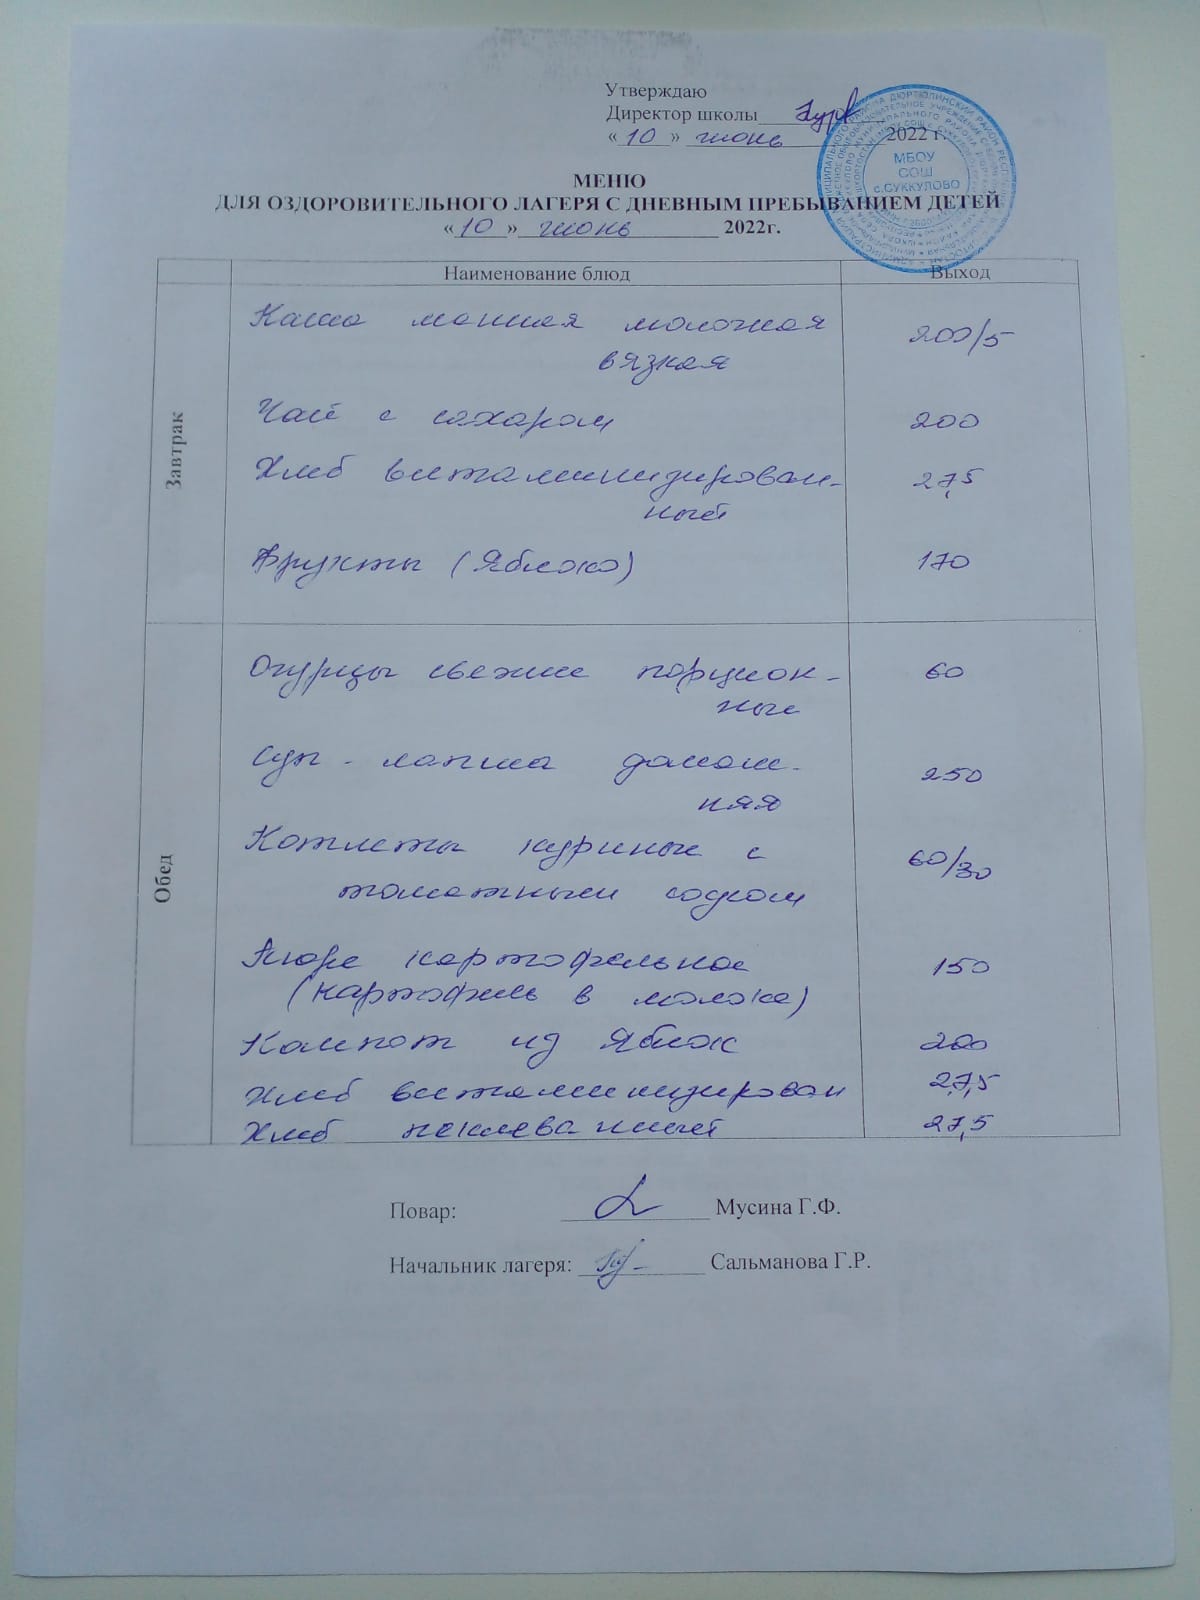 Утверждаю
Директор школы
«10» июнь 2022 г.
МБОУ
СОШ
с.СУККУЛОВО
МЕНЮ
ДЛЯ ОЗДОРОВИТЕЛЬНОГО ЛАГЕРЯ С ДНЕВНЫМ ПРЕБЫВАНИЕМ ДЕТЕЙ
«10» июнь 2022г.
Наименование блюд Выход
Завтрак
Каша манная молочная 200/5
вязкая
Чай с сахаром 200
Хлеб витаминизирован- 27,5
ный
Фрукты (Яблоко) 170
Обед
Огурцы свежие порцион- 60
ные
Суп - лапша домаш- 250
няя
Котлеты куриные с 60/30
томатным соусом
Пюре картофельное 150
(картофель в молоке)
Компот из Яблок 200
Хлеб витаминизирован 27,5
Хлеб пеклеванный 27,5
Повар: Мусина Г.Ф.
Начальник лагеря: Сальманова Г.Р.